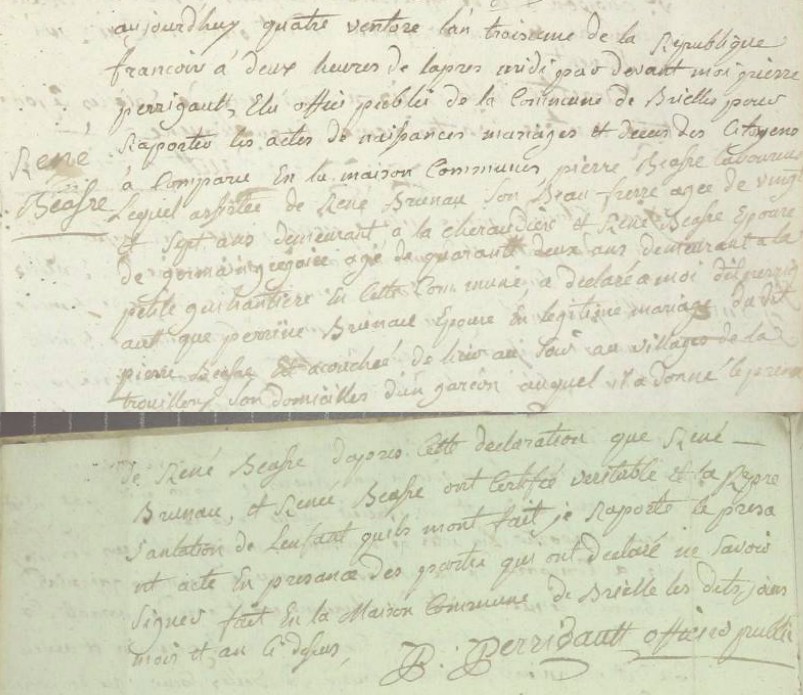 aujourd'huy quatre ventose l'an troisieme de la Republique
francois á deux heures de lapres midi par devant moi pierre
perrigault, Elu offiei publie de la Commune de Brielles pour
Raporter les actes de naissances mariages et deces des Citoyens
á Comparu En la maison Commune pierre Beasre laboureur
René
Beasre
Lequel assistée de René Brunau son Beau frerre agee de vingt
et sept ans demeurant a la cheraudiere et René Beasre Epouse
de germain gregoire agé de quarante deux ans demeurant a la
petite guihantiere En Cette Commune, a declaré a moi dit perrig
ault que perrine Brunau Epouse En legitime mariage dudit
pierre Beasre Est acouchée de hier au soir au village de la
son domicilles d'un garcon auquel il a donné le prenom
de René Beasre dapres Cette declaration que René —
Brunau, et Renee Beasre ont Certifié veritable et la Repre
santation de Lenfant quils mont fait, je Raporté le presa
nt acte En presance des partie qui ont declaré ne savoir
signer fait En la Maison Commune de Brielle les dits jours
mois et an Ci desus,
P: Perrigault officier publi